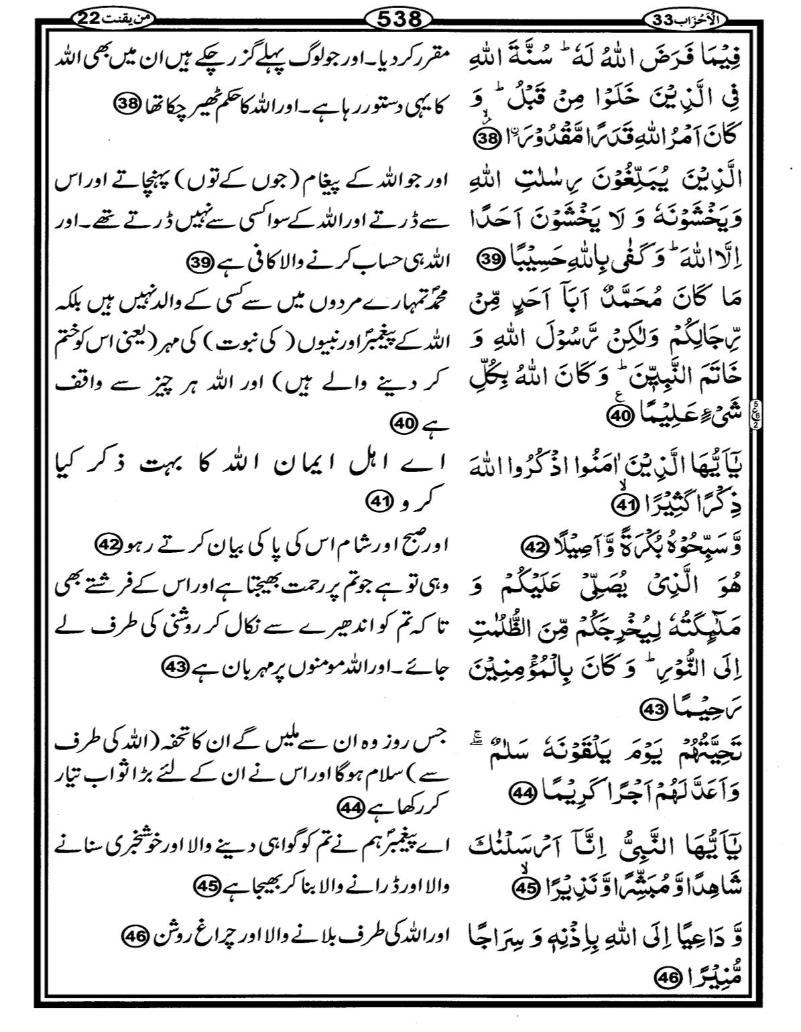 الاحزاب 33
538
من یقنت 22
فِيْمَا فَرَضَ اللّٰهُ لَهٗ ؕ سُنَّةَ اللّٰهِ
فِي الَّذِيْنَ خَلَوْا مِنْ قَبْلُ ؕ وَ
كَانَ اَمْرُ اللّٰهِ قَدَرًا مَّقْدُوْرَاۙ 38
الَّذِيْنَ يُبَلِّغُوْنَ رِسٰلٰتِ اللّٰهِ
وَيَخْشَوْنَهٗ وَ لَا يَخْشَوْنَ اَحَدًا
اِلَّا اللّٰهَ ؕ وَكَفٰى بِاللّٰهِ حَسِيْبًا 39
مَا كَانَ مُحَمَّدٌ اَبَاۤ اَحَدٍ مِّنْ
رِّجَالِكُمْ وَلٰكِنْ رَّسُوْلَ اللّٰهِ وَ
خَاتَمَ النَّبِيّٖنَ ؕ وَ كَانَ اللّٰهُ بِكُلِّ
شَيْءٍ عَلِيْمًا 40 ع
يٰۤاَيُّهَا الَّذِيْنَ اٰمَنُوا اذْكُرُوا اللّٰهَ
ذِكْرًا كَثِيْرًاۙ 41
وَّسَبِّحُوْهُ بُكْرَةً وَّاَصِيْلًا 42
هُوَ الَّذِيْ يُصَلِّيْ عَلَيْكُمْ وَ
مَلٰٓئِكَتُهٗ لِيُخْرِجَكُمْ مِّنَ الظُّلُمٰتِ
اِلَى النُّوْرِ ؕ وَ كَانَ بِالْمُؤْمِنِيْنَ
رَحِيْمًا 43
تَحِيَّتُهُمْ يَوْمَ يَلْقَوْنَهٗ سَلٰمٌ ۖۚ
وَاَعَدَّ لَهُمْ اَجْرًا كَرِيْمًا 44
يٰۤاَيُّهَا النَّبِيُّ اِنَّاۤ اَرْسَلْنٰكَ
شَاهِدًا وَّمُبَشِّرًا وَّنَذِيْرًاۙ 45
وَّ دَاعِيًا اِلَى اللّٰهِ بِاِذْنِهٖ وَ سِرَاجًا
مُّنِيْرًا 46
مقرر کر دیا۔ اور جو لوگ پہلے گزر چکے ہیں ان میں بھی اللہ
کا یہی دستور رہا ہے۔ اور اللہ کا حکم ٹھیر چکا تھا 38
اور جو اللہ کے پیغام (جوں کے توں) پہنچاتے اور اس
سے ڈرتے اور اللہ کے سوا کسی سے نہیں ڈرتے تھے۔ اور
اللہ ہی حساب کرنے والا کافی ہے 39
محمدؐ تمہارے مردوں میں سے کسی کے والد نہیں ہیں بلکہ
اللہ کے پیغمبرؐ اور نبیوں (کی نبوت) کی مہر (یعنی اس کو ختم
کر دینے والے ہیں) اور اللہ ہر چیز سے واقف
ہے 40
اے اہل ایمان اللہ کا بہت ذکر کیا
کرو 41
اور صبح اور شام اس کی پاکی بیان کرتے رہو 42
وہی تو ہے جو تم پر رحمت بھیجتا ہے اور اس کے فرشتے بھی
تاکہ تم کو اندھیرے سے نکال کر روشنی کی طرف لے
جائے۔ اور اللہ مومنوں پر مہربان ہے 43
جس روز وہ ان سے ملیں گے ان کا تحفہ (اللہ کی طرف
سے) سلام ہوگا اور اس نے ان کے لئے بڑا ثواب تیار
کر رکھا ہے 44
اے پیغمبرؐ ہم نے تم کو گواہی دینے والا اور خوشخبری سنانے
والا اور ڈرانے والا بنا کر بھیجا ہے 45
اور اللہ کی طرف بلانے والا اور چراغ روشن 46